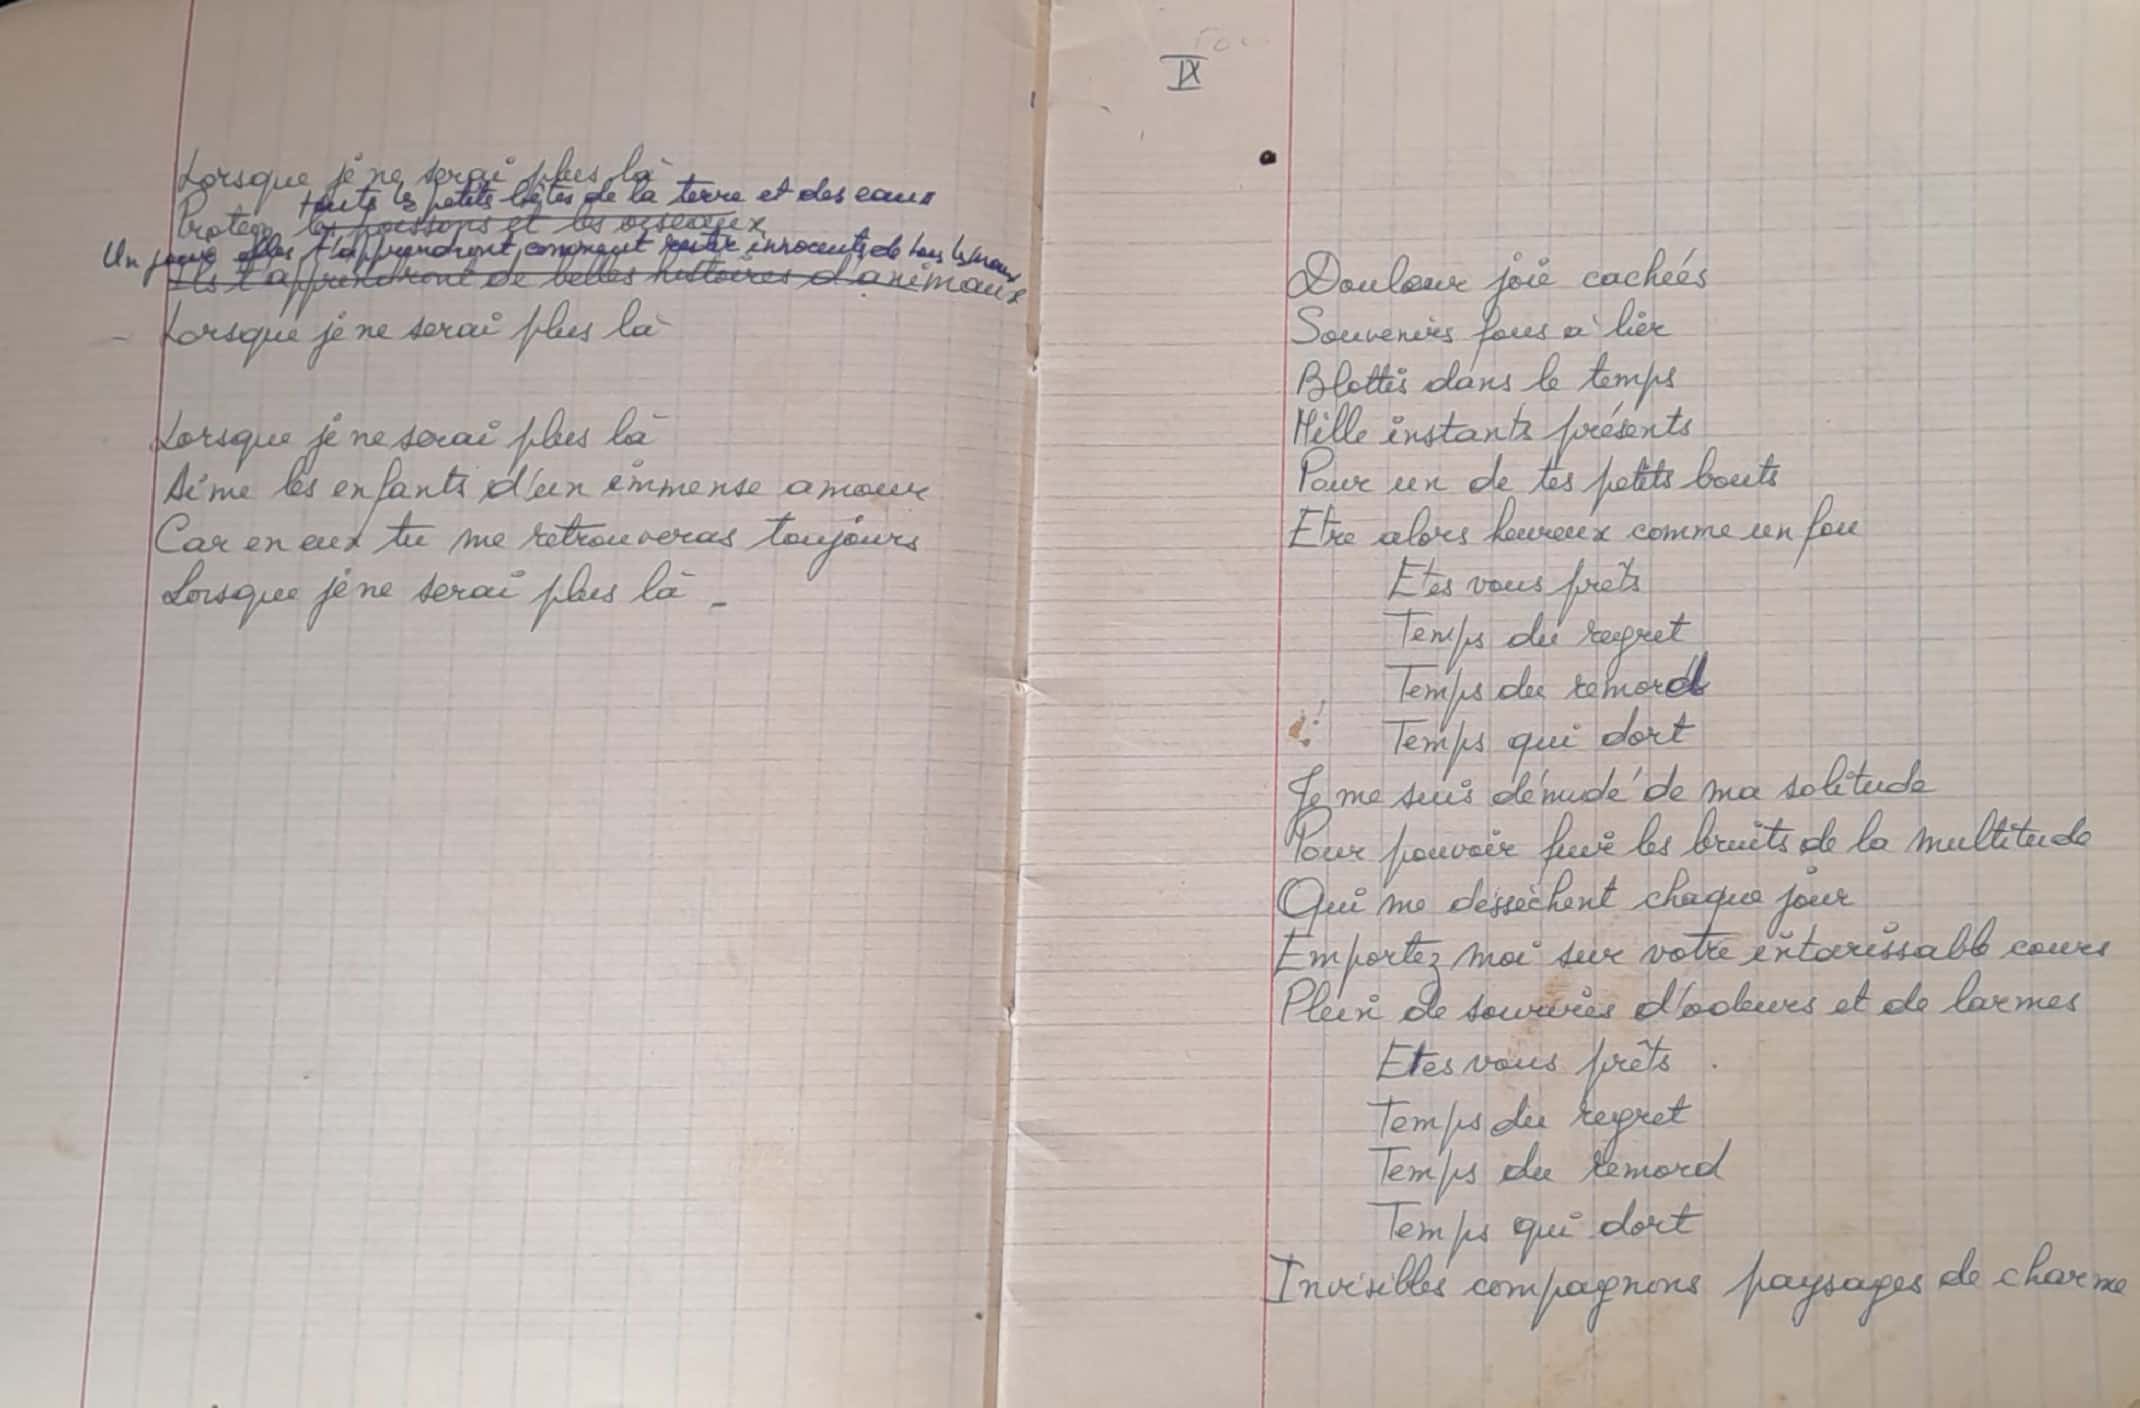 Lorsque je ne serai plus là
touts les petits bêtes de la terre et des eaux
Protège les poissons et les oiseaux
Un jour elles t'apprendront comment rester innocents de tous les maux
Ils t'apprendront de belles histoires d'animaux
Lorsque je ne serai plus là
Lorsque je ne serai plus là
Aime les enfants d'un immense amour
Car en eux tu me retrouveras toujours
Lorsque je ne serai plus là -
IX
Douleur joie cachées
Souvenirs fous à lier
Blottis dans le temps
Mille instants présents
Pour un de tes petits bouts
Etre alors heureux comme un fou
Etes vous prêts
Temps du regret
Temps du remord
Temps qui dort
Je me suis dénudé de ma solitude
Pour pouvoir fuir les bruits de la multitude
Qui me dessèchent chaque jour
Emportez moi sur votre intarissable cours
Plein de sourires d'odeurs et de larmes
Etes vous prêts
Temps du regret
Temps du remord
Temps qui dort
Invisibles compagnons paysages de charme